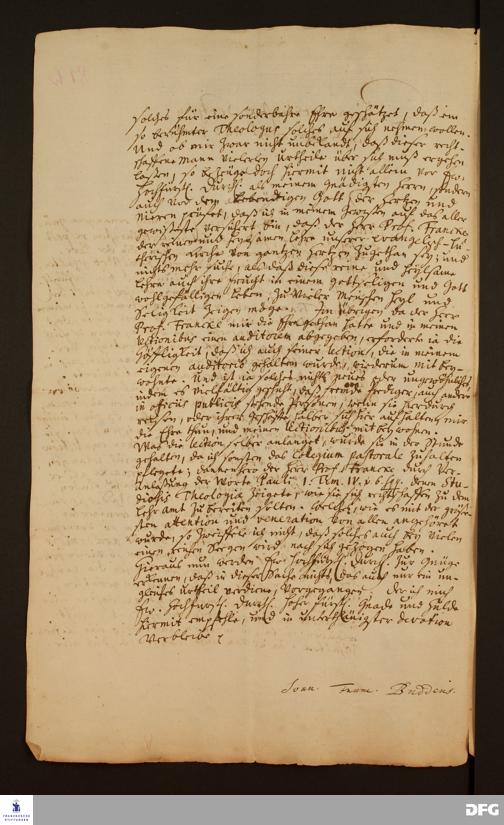 solches für eine sonderbahre Ehre geschätzet, daß ein
so berühmter Theologus solches auf sich nehmen wollen.
Und ob mir zwar nicht unbekandt, daß dieser recht-
schaffene Mann vielerley Urtheile über sich muß ergehen
lassen, so bezeuge doch hiermit nicht allein vor Ew.
Hochfürstl. Durchl. als meinem gnädigsten Herrn, sondern
auch vor dem lebendigen Gott, der Hertzen und
Nieren prüfet, daß ich in meinem Gewissen auf das aller
gewisseste versichert bin, daß der Herr Prof. Francke
der reinen und heylsamen Lehre unserer Evangelisch-Lu-
therischen Kirche von gantzen Hertzen zugethan sey; und
nichts mehr suche, als daß diese reine und heylsame
Lehre auch ihre Frucht in einem gottseligen und Gott
wohlgefälligen Leben, zu vieler Menschen Heyl und
Seligkeit zeigen möge. Im übrigen, da der Herr
Prof. Francke mir die Ehre gethan hatte und in meinen
Lectionibus einen auditorem abgegeben, erforderte ja die
Höfligkeit, daß ich auch seiner Lection, die in meinem
eigenen auditorio gehalten wurde, wiederum mit bey-
wohnte. Und ist ja solches nichts neues oder ungewöhnliches,
indem es vielfältig geschieht, daß fremde Prediger, auch andere
in officiis publicis stehende Personen, wenn sie hierdurch
reisen, oder ihrer Geschäffte halber sich hier aufhalten, mir
die Ehre thun, und meinen Lectionibus mit beywohnen.
Was die Lection selber anlanget, wurde sie in der Stunde
gehalten, da ich sonsten das Collegium pastorale zu halten
pflegete; dannenhero der Herr Prof. Francke durch Ver-
anlaßung der Worte Pauli 1. Tim. IV, v. 6. seqq. denen Stu-
diosis Theologiæ zeigete, wie sie sich rechtschaffen zu dem
Lehr amt zu bereiten hätten. Welches, wie es mit der größe-
sten attention und veneration von allen angehöret
wurde, so zweiffele ich nicht, daß solches auch bey vielen
einen reichen Seegen wird nach sich gezogen haben.
Hieraus nun werden Ew. Hochfürstl. Durchl. zur Gnüge
erkennen, daß in dieser Sache nichts, das auch nur ein un-
gleiches Urtheil verdiene, vorgegangen. Der ich mich
Ew. Hochfürstl. Durchl. hohen Fürstl. Gnade und Hulde
hiermit empfehle, und in unterthänigster devotion
verbleibe
Joan. Franc. Buddeus.
FRANCKESCHE
STIFTUNGEN
DFG